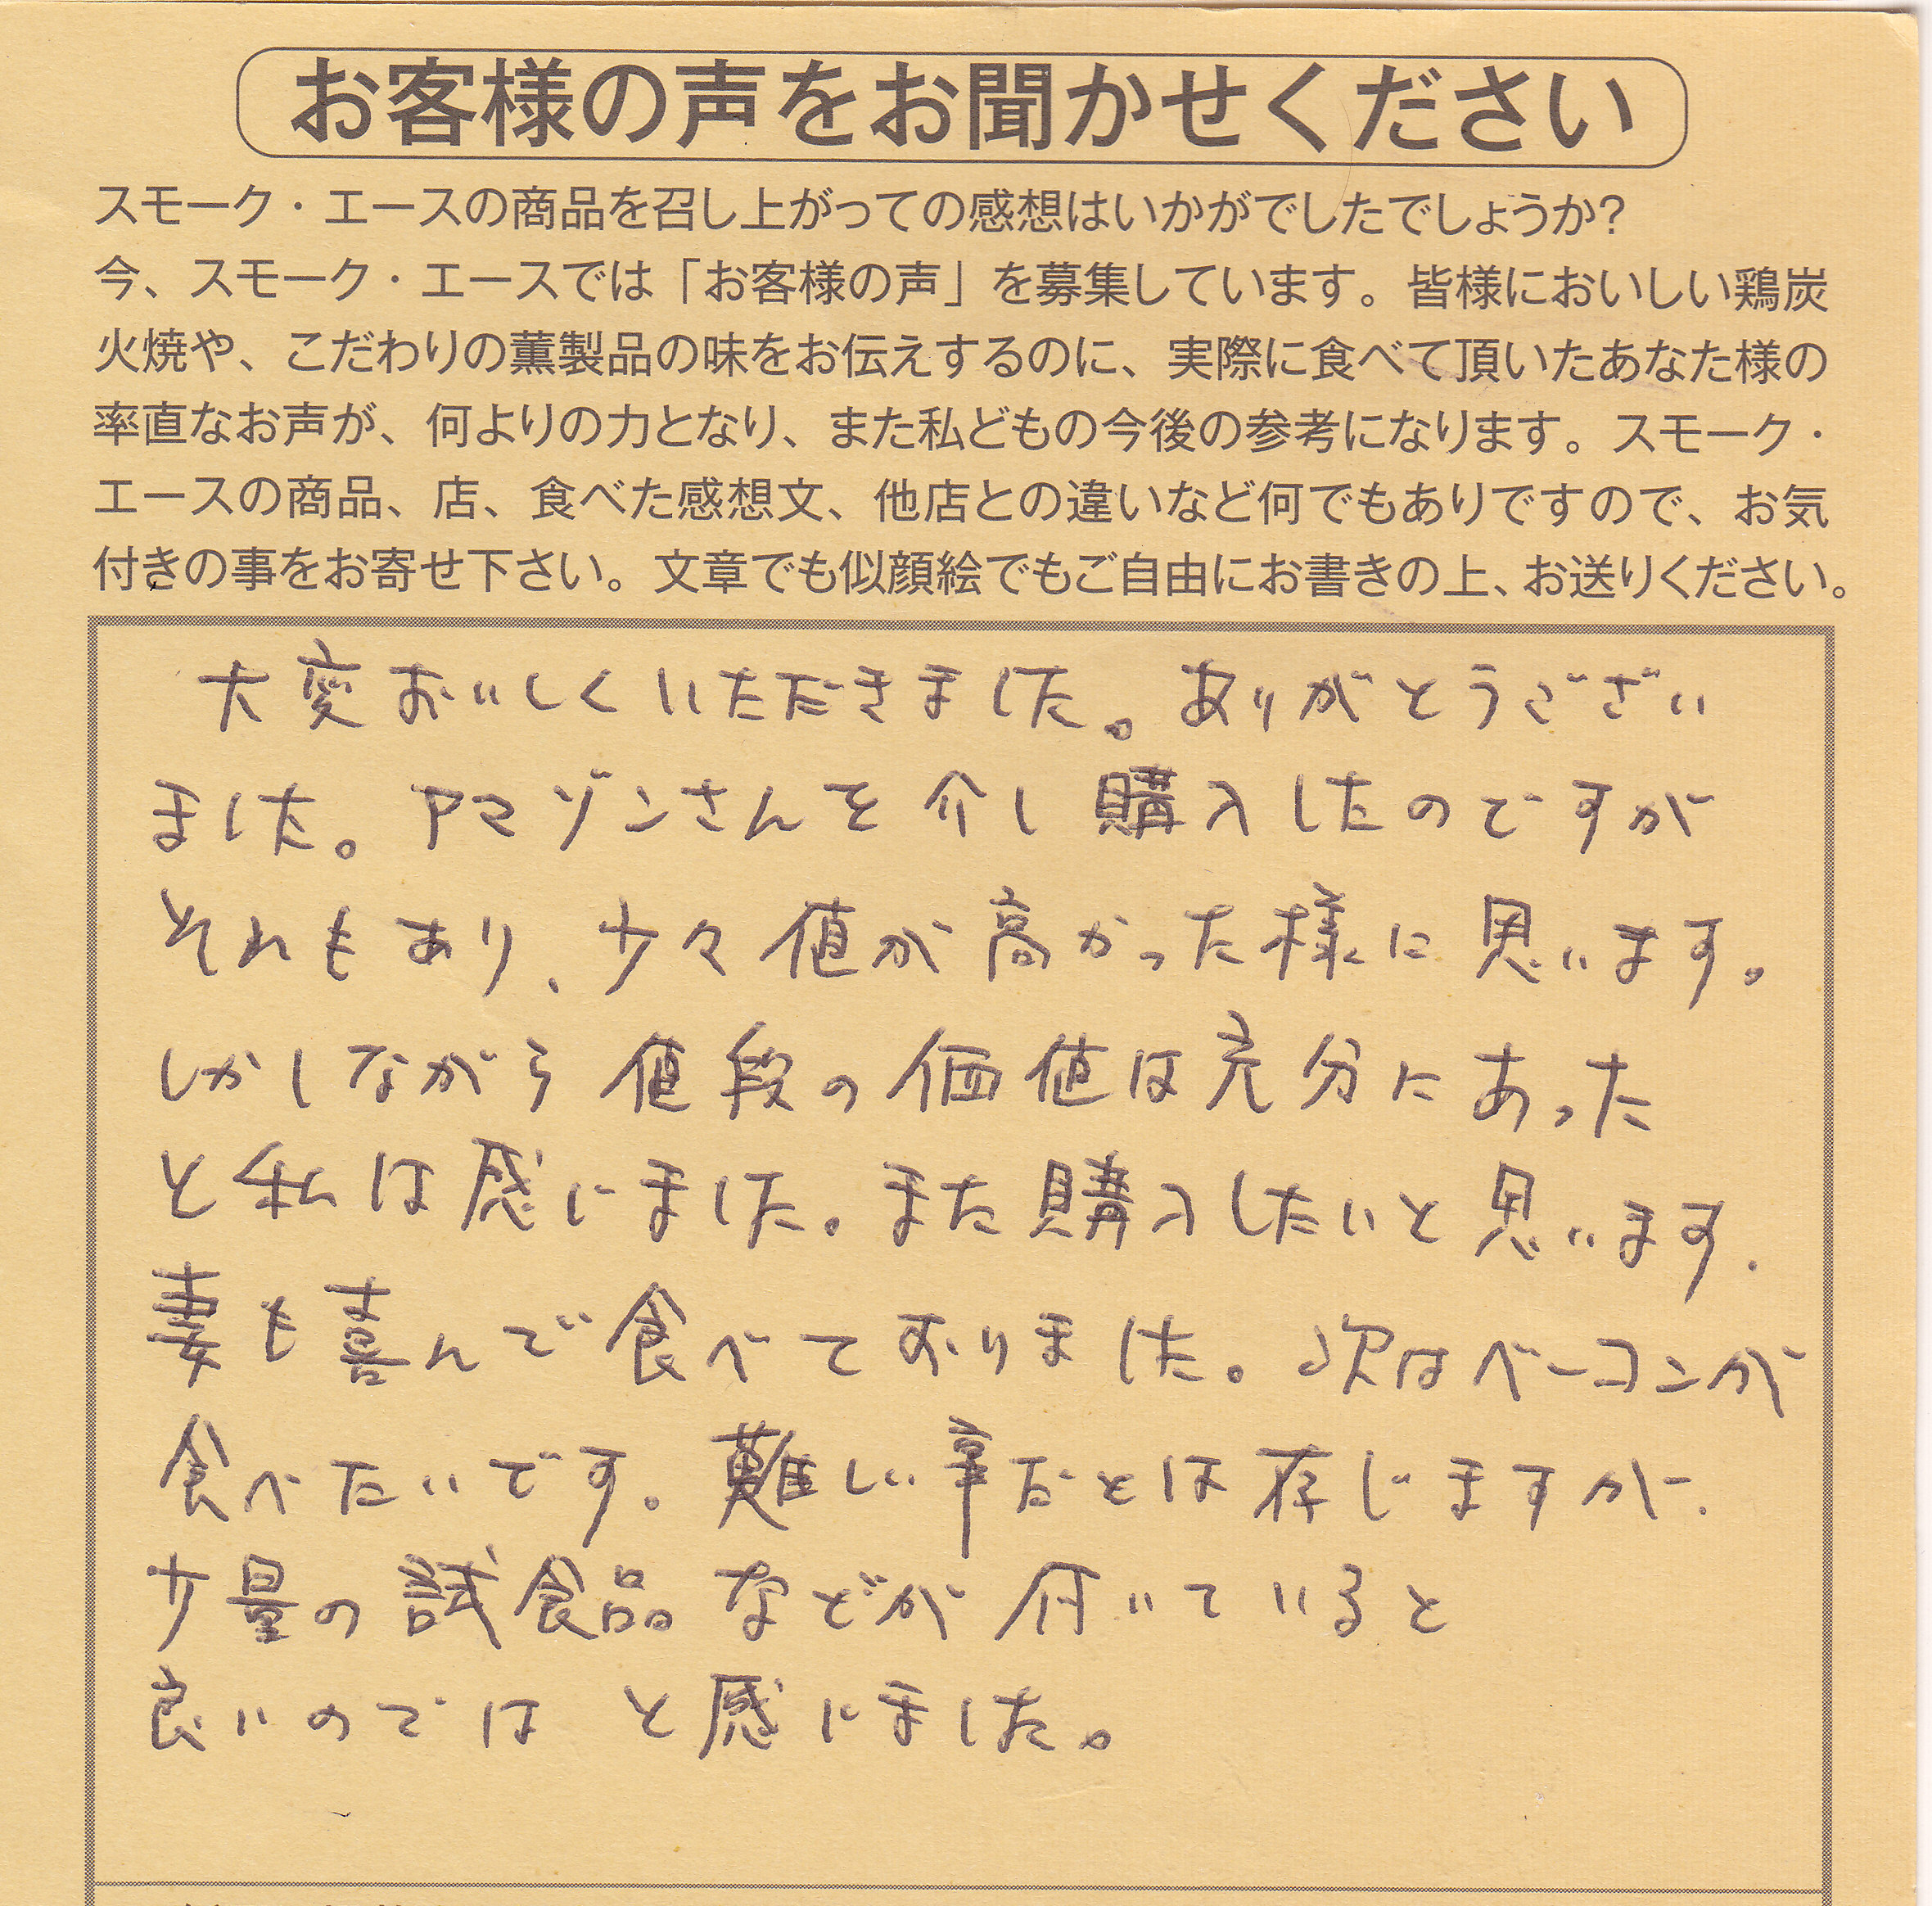 お客様の声をお聞かせください
スモーク・エースの商品を召し上がっての感想はいかがでしたでしょうか?
今、スモーク・エースでは「お客様の声」を募集しています。皆様においしい鶏炭
火焼や、こだわりの薫製品の味をお伝えするのに、実際に食べて頂いたあなた様の
率直なお声が、何よりの力となり、また私どもの今後の参考になります。スモーク・
エースの商品、店、食べた感想文、他店との違いなど何でもありですので、お気
付きの事をお寄せ下さい。文章でも似顔絵でもご自由にお書きの上、お送りください。
大変おいしくいただきました。ありがとうござい
ました。アマゾンさんを介し購入したのですが
それもあり、少々値が高かった様に思います。
しかしながら値段の価値は充分にあった
と私は感じました。また購入したいと思います.
妻も喜んで食べておりました。次はベーコンが
食べたいです。難しい事だとは存じますが、
少量の試食品などが付いていると
良いのでは と感じました。